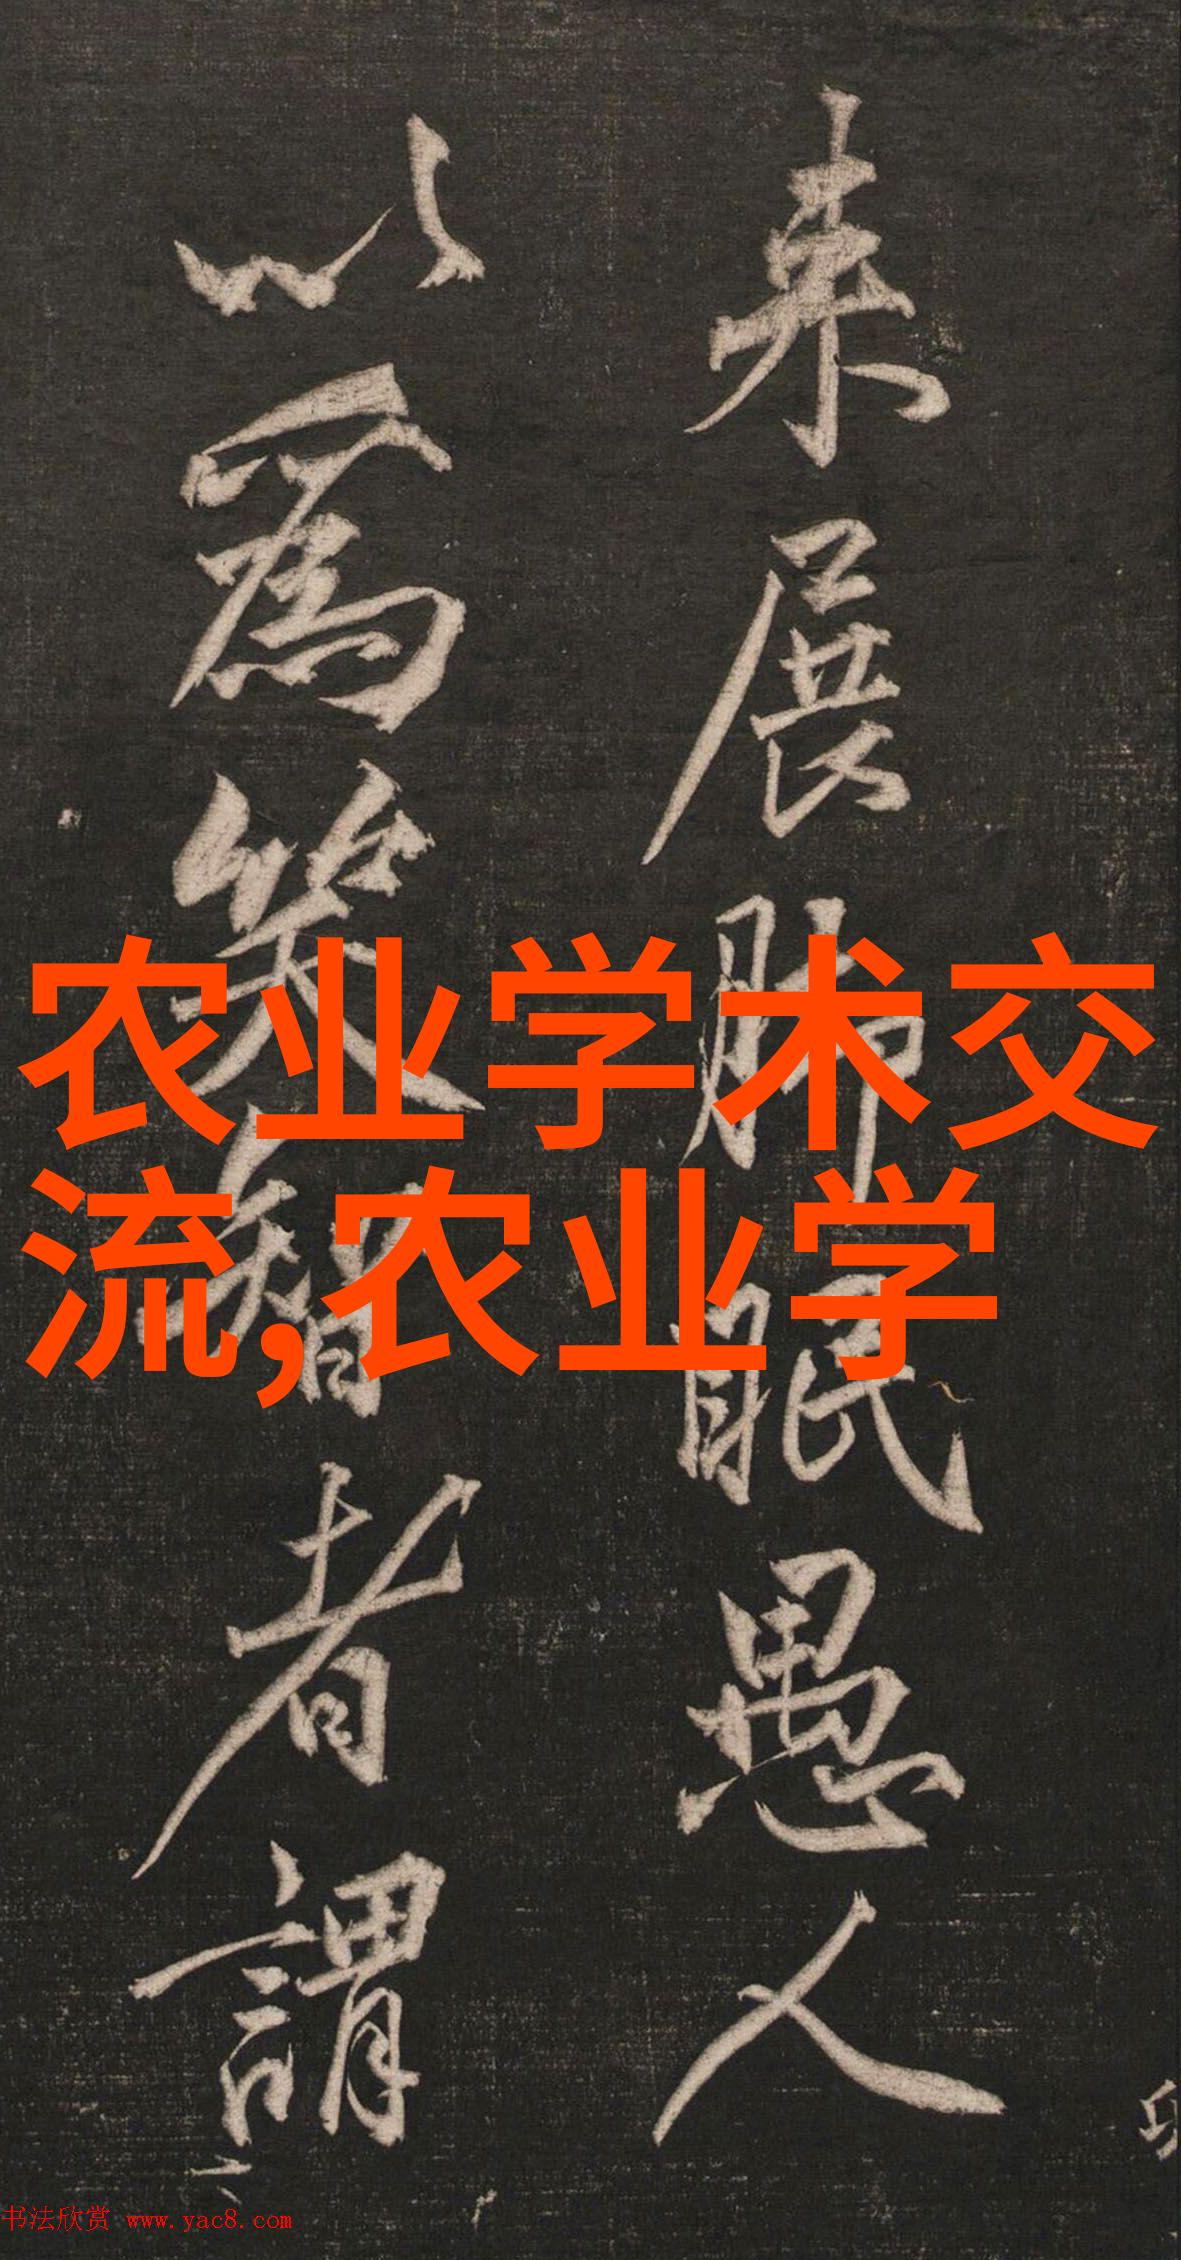 未展肺眠愚人
以為笑智者謂
农业学术交
流,农业学
书法欣赏 www.yac8.com